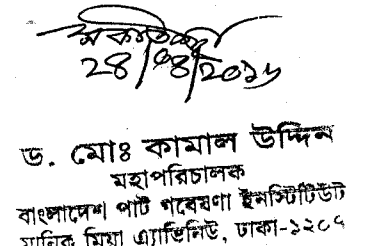 ২৪/০৪/২০১৬
ড. মোঃ কামাল উদ্দিন
মহাপরিচালক
বাংলাদেশ পাট গবেষণা ইনস্টিটিউট
মানিক মিয়া এ্যাভিনিউ, ঢাকা-১২০৭